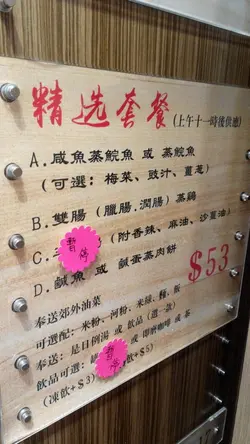 精选套餐 (上午十一時後供應)
A. 咸魚蒸鯇魚 或 蒸鯇魚
(可選：梅菜、豉汁、薑葱)
B. 雙腸 (臘腸、潤腸) 蒸鷄
C. 暫停 (附香辣、麻油、沙薑油)
D. 鹹魚 或 鹹蛋蒸肉餅
$53
奉送郊外油菜
可選配：米粉、河粉、米線、麵、飯
奉送：是日例湯 或 飲品 (選一款)
飲品可選： 暫停 或 即磨咖啡 或 茶
(凍飲+$3) 飲+$5)